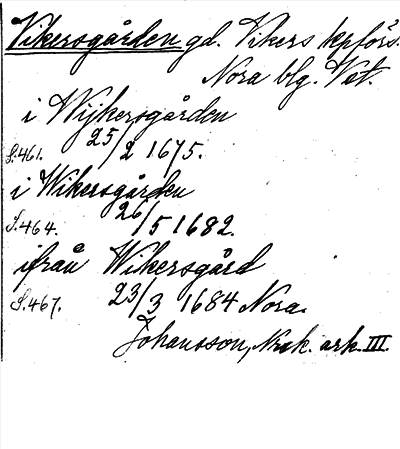 Vikersgården gd. Vikers kpförs.
Nora blg. Vst.
i Wijkersgården
S.461. 25/2 1675.
i Wikersgården
S.464. 26/5 1682.
ifrån Wikersgård
S.467. 23/3 1684 Nora.
Johansson, Nrk. ark. III.